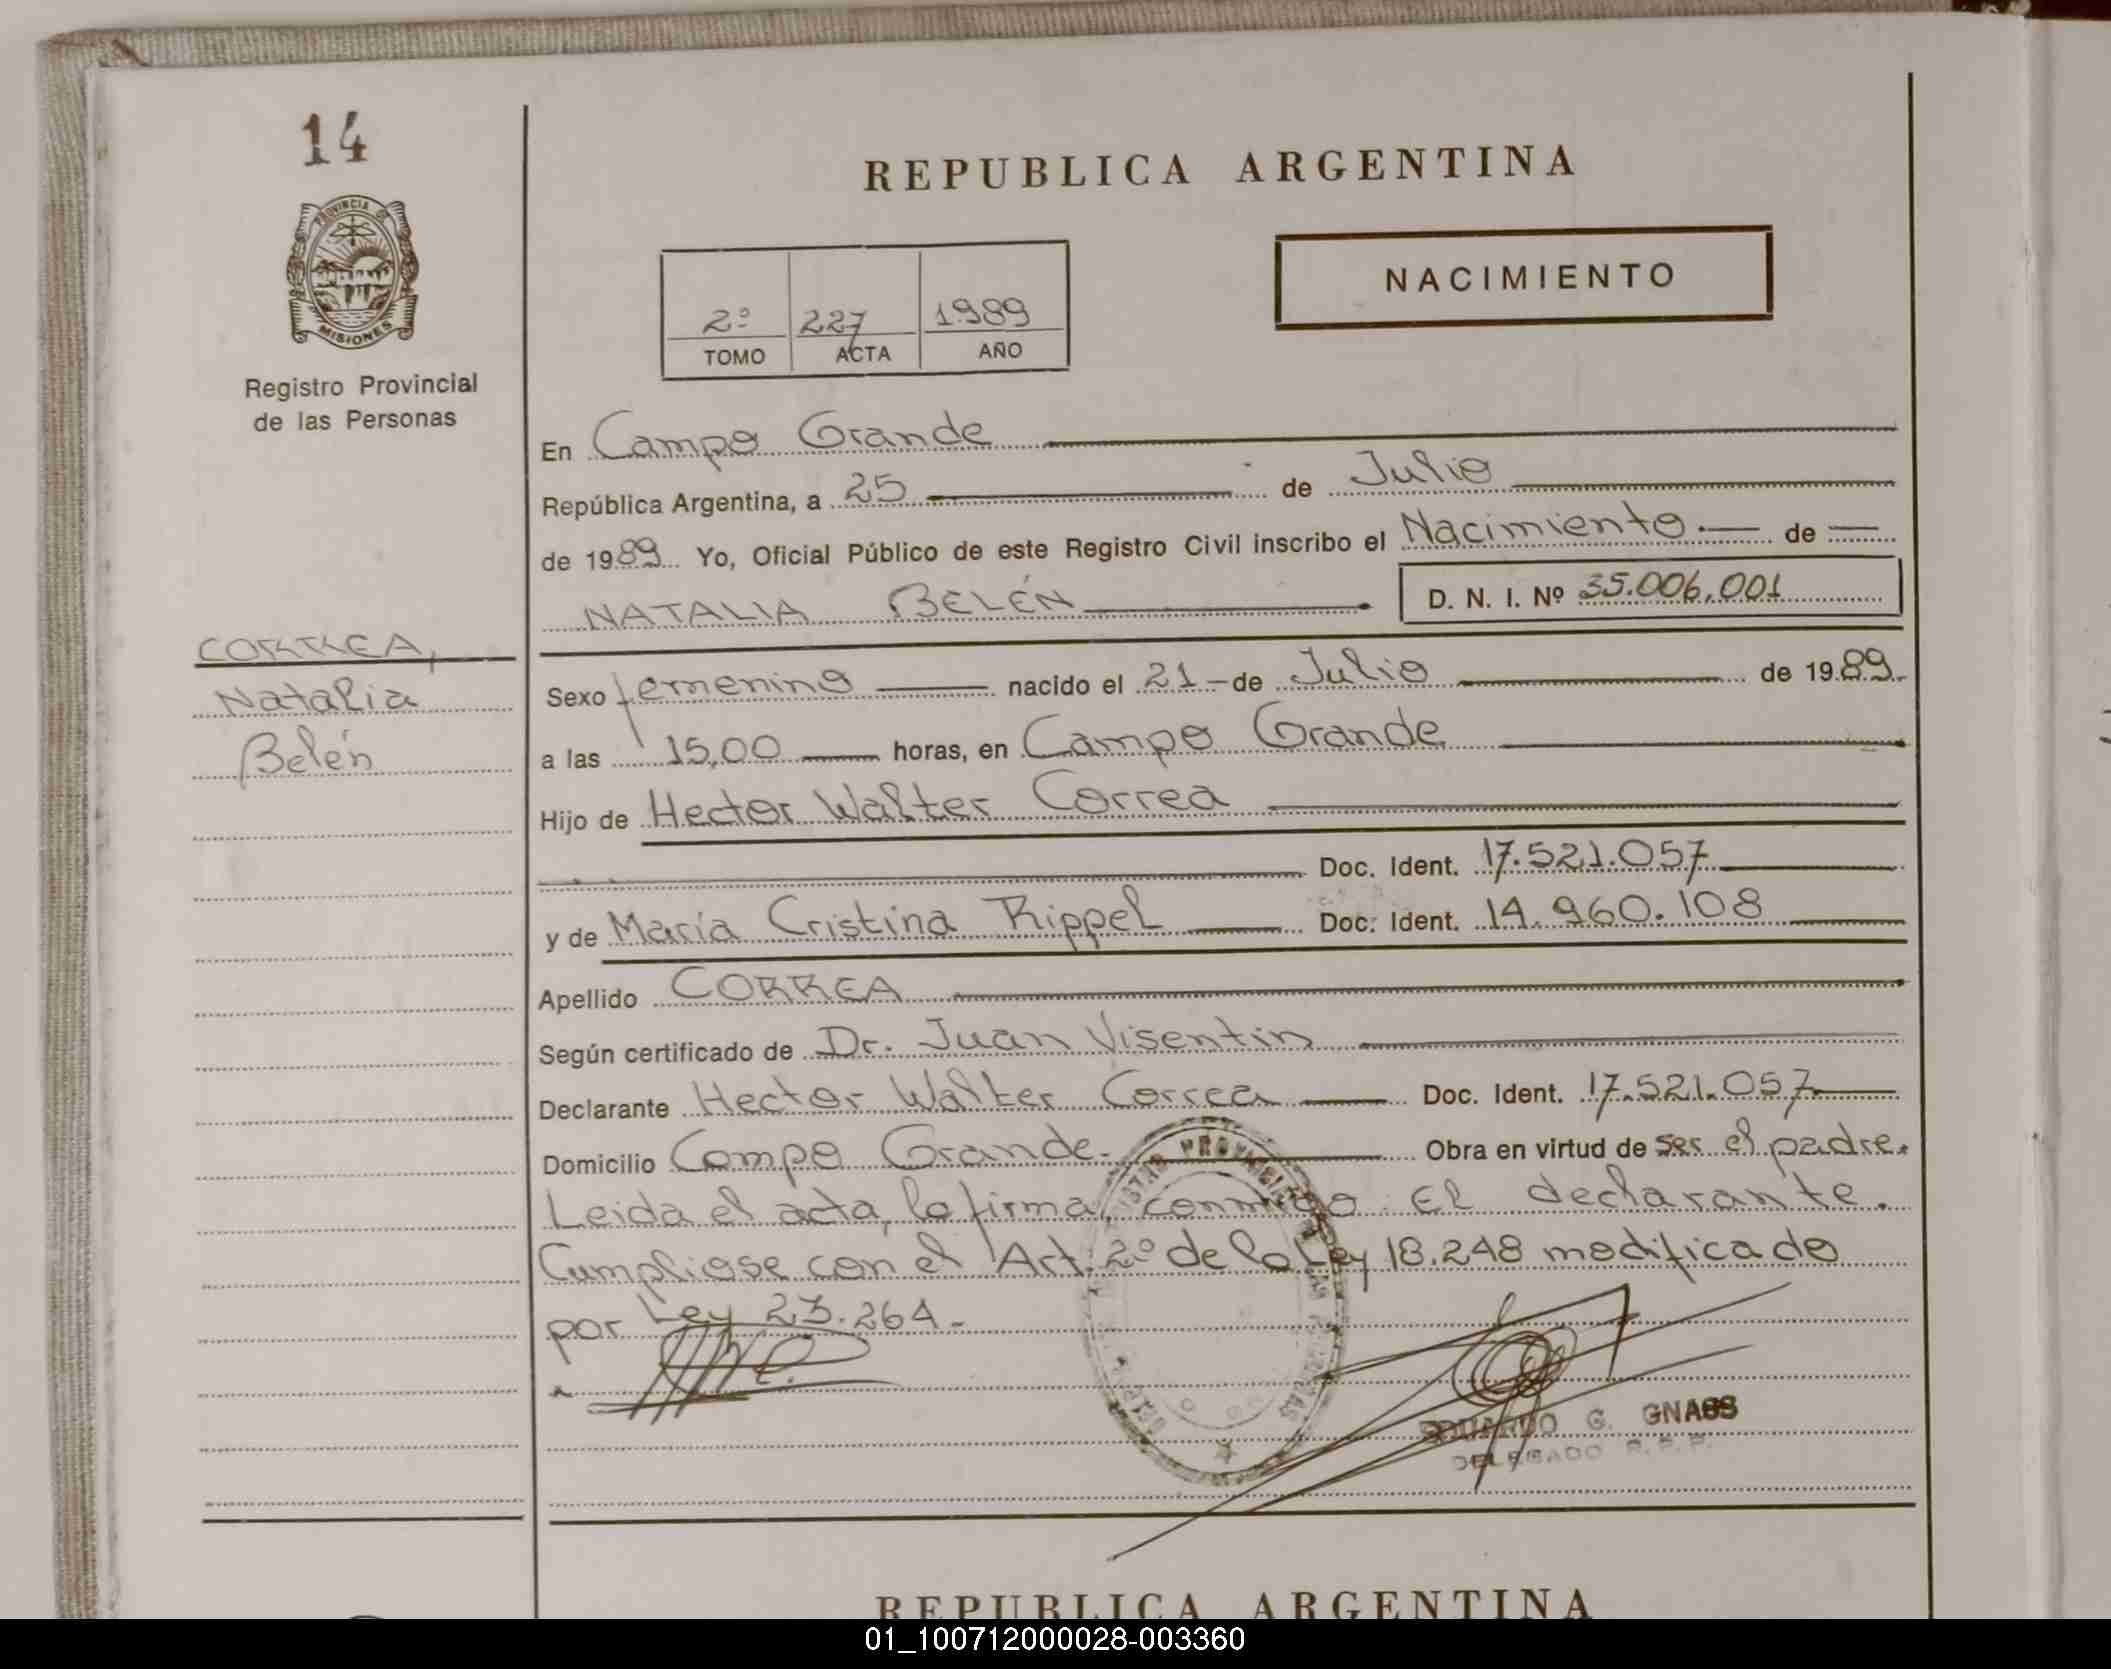 14
PROVINCIA DE
MISIONES
Registro Provincial
de las Personas
REPUBLICA ARGENTINA
NACIMIENTO
2º 227 1989
TOMO ACTA AÑO
En Campo Grande
República Argentina, a 25 de Julio
de 1989 Yo, Oficial Público de este Registro Civil inscribo el Nacimiento de
NATALIA BELÉN D. N. I. Nº 35.006.001
CORREA,
Natalia
Belén
Sexo femenino nacido el 21 de Julio de 1989
a las 15,00 horas, en Campo Grande
Hijo de Hector Walter Correa
Doc. Ident. 17.521.057
y de María Cristina Rippel Doc. Ident. 14.960.108
Apellido CORREA
Según certificado de Dr. Juan Visentin
Declarante Hector Walter Correa Doc. Ident. 17.521.057
Domicilio Campo Grande. Obra en virtud de ser el padre.
Leida el acta, la firma, conmigo El declarante.
Cumpliose con el Art. 2º de la Ley 18.248 modificado
por Ley 23.264.-
EDUARDO G. GNASS
DELEGADO R.P.P.
REPUBLICA ARGENTINA
01_100712000028-003360